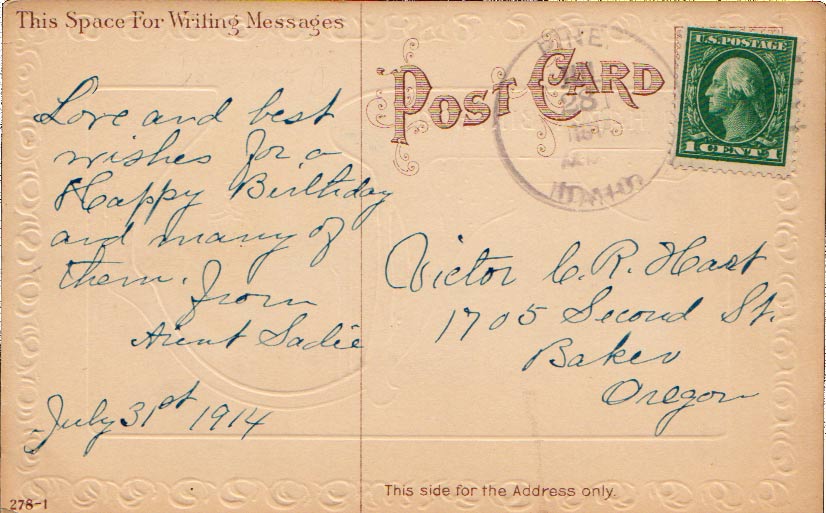 This Space For Writing Messages
POST CARD
U.S. POSTAGE
1 CENT 1
28
IDAHO
Love and best
wishes for a
Happy Birthday
and many of
them. from
Aunt Sadie
July 31st 1914
Victor C. R. Hart
1705 Second St.
Baker
Oregon
This side for the Address only.
278-1